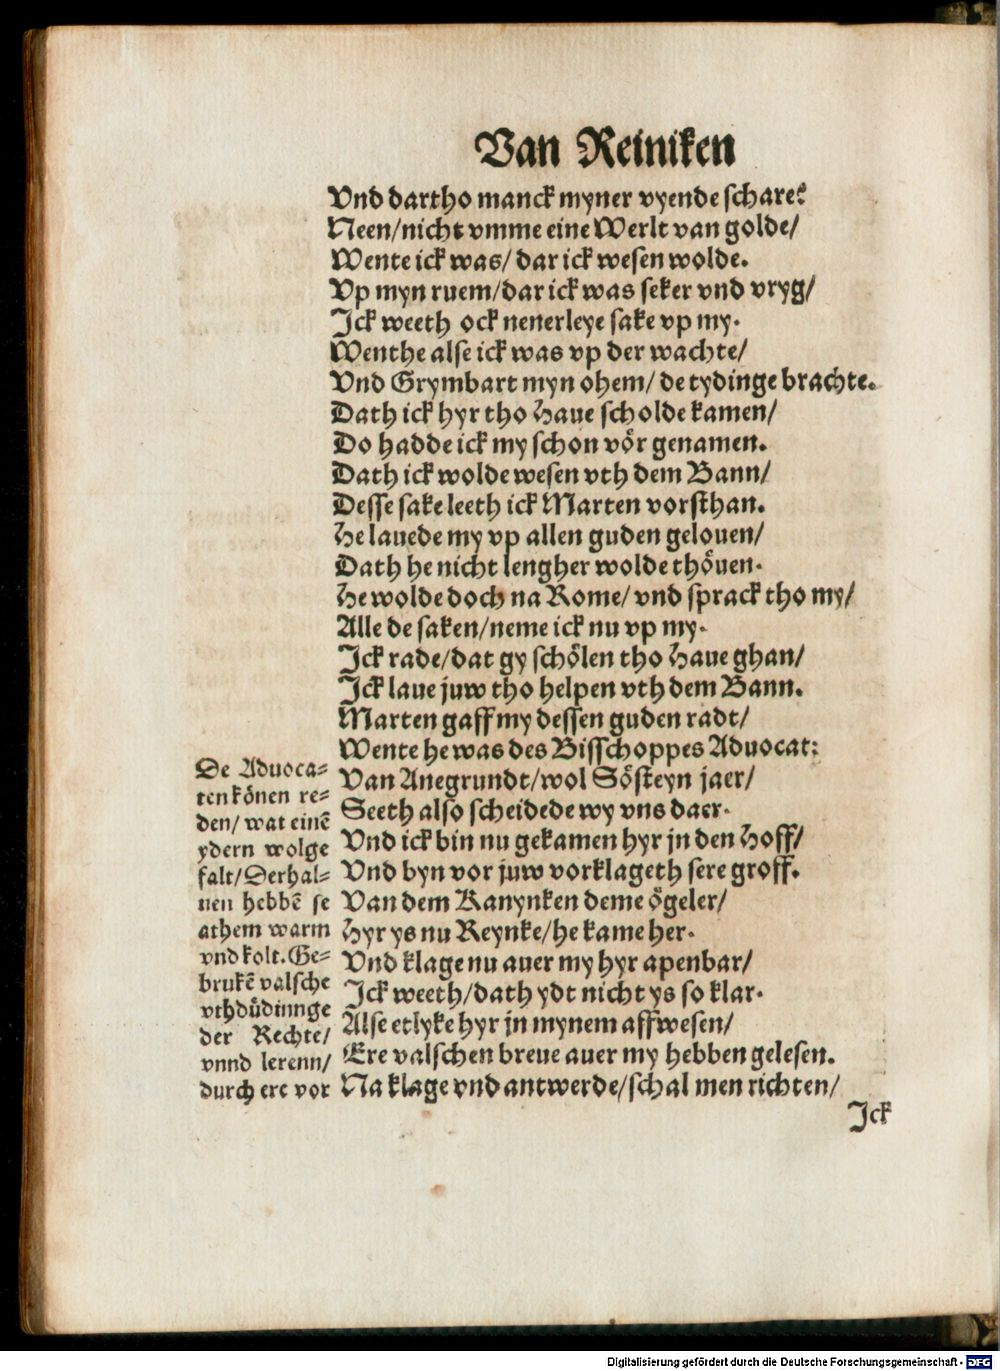 Van Reiniken
Vnd dartho manck myner vyende schare?
Neen/nicht vmme eine Werlt van golde/
Wente ick was/ dar ick wesen wolde.
Vp myn ruem/dar ick was seker vnd vryg/
Jck weeth ock nenerleye sake vp my.
Wenthe alse ick was vp der wachte/
Vnd Grymbart myn ohem/ de tydinge brachte.
Dath ick hyr tho Haue scholde kamen/
Do hadde ick my schon vör genamen.
Dath ick wolde wesen vth dem Bann/
Desse sake leeth ick Marten vorsthan.
He lauede my vp allen guden gelouen/
Dath he nicht lengher wolde thöuen.
He wolde doch na Rome/ vnd sprack tho my/
Alle de saken/neme ick nu vp my.
Jck rade/dat gy schölen tho Haue ghan/
Jck laue juw tho helpen vth dem Bann.
Marten gaff my dessen guden radt/
Wente he was des Bisschoppes Aduocat:
Van Anegrundt/wol Sösteyn jaer/
Seeth also scheidede wy vns daer.
Vnd ick bin nu gekamen hyr jn den Hoff/
Vnd byn vor juw vorklageth sere groff.
Van dem Kanynken deme ögeler/
Hyr ys nu Reynke/he kame her.
Vnd klage nu auer my hyr apenbar/
Jck weeth/dath ydt nicht ys so klar.
Alse etlyke hyr jn mynem affwesen/
Ere valschen breue auer my hebben gelesen.
Na klage vnd antwerde/schal men richten/
Jck
De Aduoca=
ten könen re=
den/ wat einē
ydern wolge
falt/Derhal=
uen hebbē se
athem warm
vnd kolt. Ge=
brukē valsche
vthdüdinnge
der Rechte/
vnnd lerenn/
durch ere vor
Digitalisierung gefördert durch die Deutsche Forschungsgemeinschaft - DFG